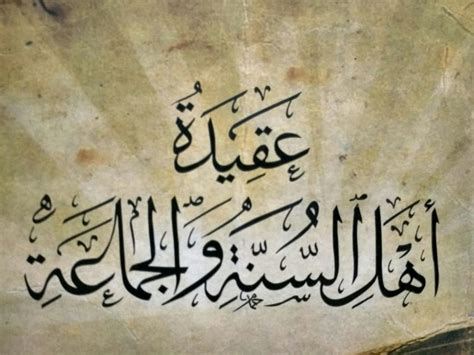 عَقِيدَةُ
أَهْلِ السُّنَّةِ وَالْجَمَاعَةِ